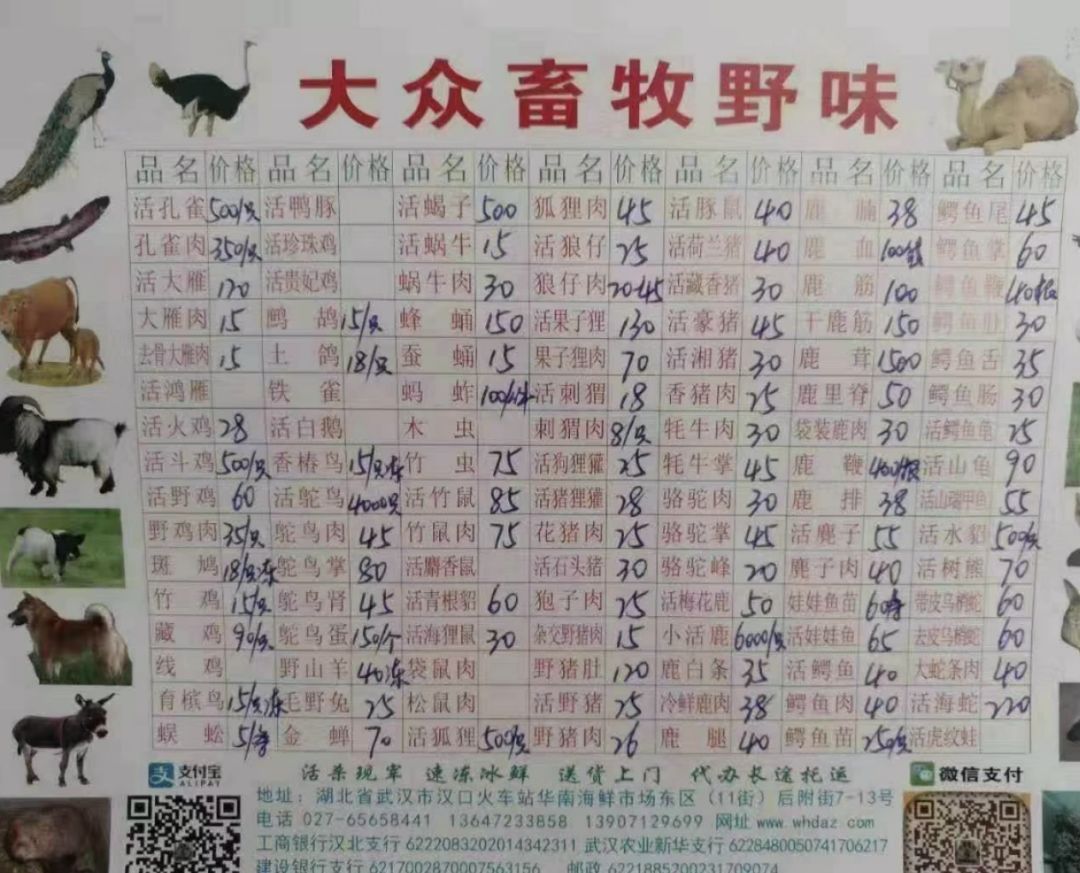 大众畜牧野味
品名 价格 品名 价格 品名 价格 品名 价格 品名 价格 品名 价格 品名 价格
活孔雀 500/只 活鸭豚 活蝎子 500 狐狸肉 45 活豚鼠 40 鹿腩 38 鳄鱼尾 45
孔雀肉 350/只 活珍珠鸡 活蜗牛 15 活狼仔 25 活荷兰猪 40 鹿血 鳄鱼掌 60
活大雁 120 活贵妃鸡 蜗牛肉 30 狼仔肉 20-45 活藏香猪 30 鹿筋 100 鳄鱼鞭 40/根
大雁肉 15 鹧鸪 15/只 蜂蛹 150 活果子狸 130 活豪猪 45 干鹿筋 150 鳄鱼肚 30
去骨大雁肉 15 土鸽 18/只 蚕蛹 15 果子狸肉 70 活湘猪 30 鹿茸 1500 鳄鱼舌 35
活鸿雁 铁雀 蚂蚱 活刺猬 18 香猪肉 25 鹿里脊 50 鳄鱼肠 30
活火鸡 28 活白鹅 木虫 刺猬肉 8/只 牦牛肉 30 袋装鹿肉 30 活鳄鱼龟 25
活斗鸡 500/只 香椿鸟 15/只冻 竹虫 75 活狗狸獾 25 牦牛掌 45 鹿鞭 400/根 活山龟 90
活野鸡 60 活鸵鸟 4000只 活竹鼠 85 活猪狸獾 28 骆驼肉 30 鹿排 38 活山瑞甲鱼 55
野鸡肉 35/只 鸵鸟肉 45 竹鼠肉 75 花猪肉 25 骆驼掌 45 活麂子 55 活水貂 500/只
斑鸠 18/只冻 鸵鸟掌 80 活麝香鼠 活石头猪 30 骆驼峰 20 麂子肉 40 活树熊 70
竹鸡 15/只 鸵鸟肾 45 活青根貂 60 狍子肉 25 活梅花鹿 50 娃娃鱼苗 带皮乌梢蛇 60
藏鸡 90/只 鸵鸟蛋 150/个 活海狸鼠 30 杂交野猪肉 15 小活鹿 6000/只 活娃娃鱼 65 去皮乌梢蛇 60
线鸡 野山羊 40冻 袋鼠肉 野猪肚 120 鹿白条 35 活鳄鱼 40 大蛇条肉 40
育槟鸟 15/只冻 毛野兔 25 松鼠肉 活野猪 25 冷鲜鹿肉 38 鳄鱼肉 40 活海蛇 220
蜈蚣 金蝉 70 活狐狸 500/只 野猪肉 26 鹿腿 40 鳄鱼苗 250/只 活虎纹蛙
支付宝 ALIPAY 活杀现宰 速冻冰鲜 送货上门 代办长途托运 微信支付
地址：湖北省武汉市汉口火车站华南海鲜市场东区（11街）后附街7-13号
电话 027-65658441 13647233858 13907129699 网址 www.whdaz.com
工商银行汉北支行 6222083202014342311 武汉农业新华支行 6228480050741706217
建设银行万支行 6217002870007563156 邮政 6221885200231709074